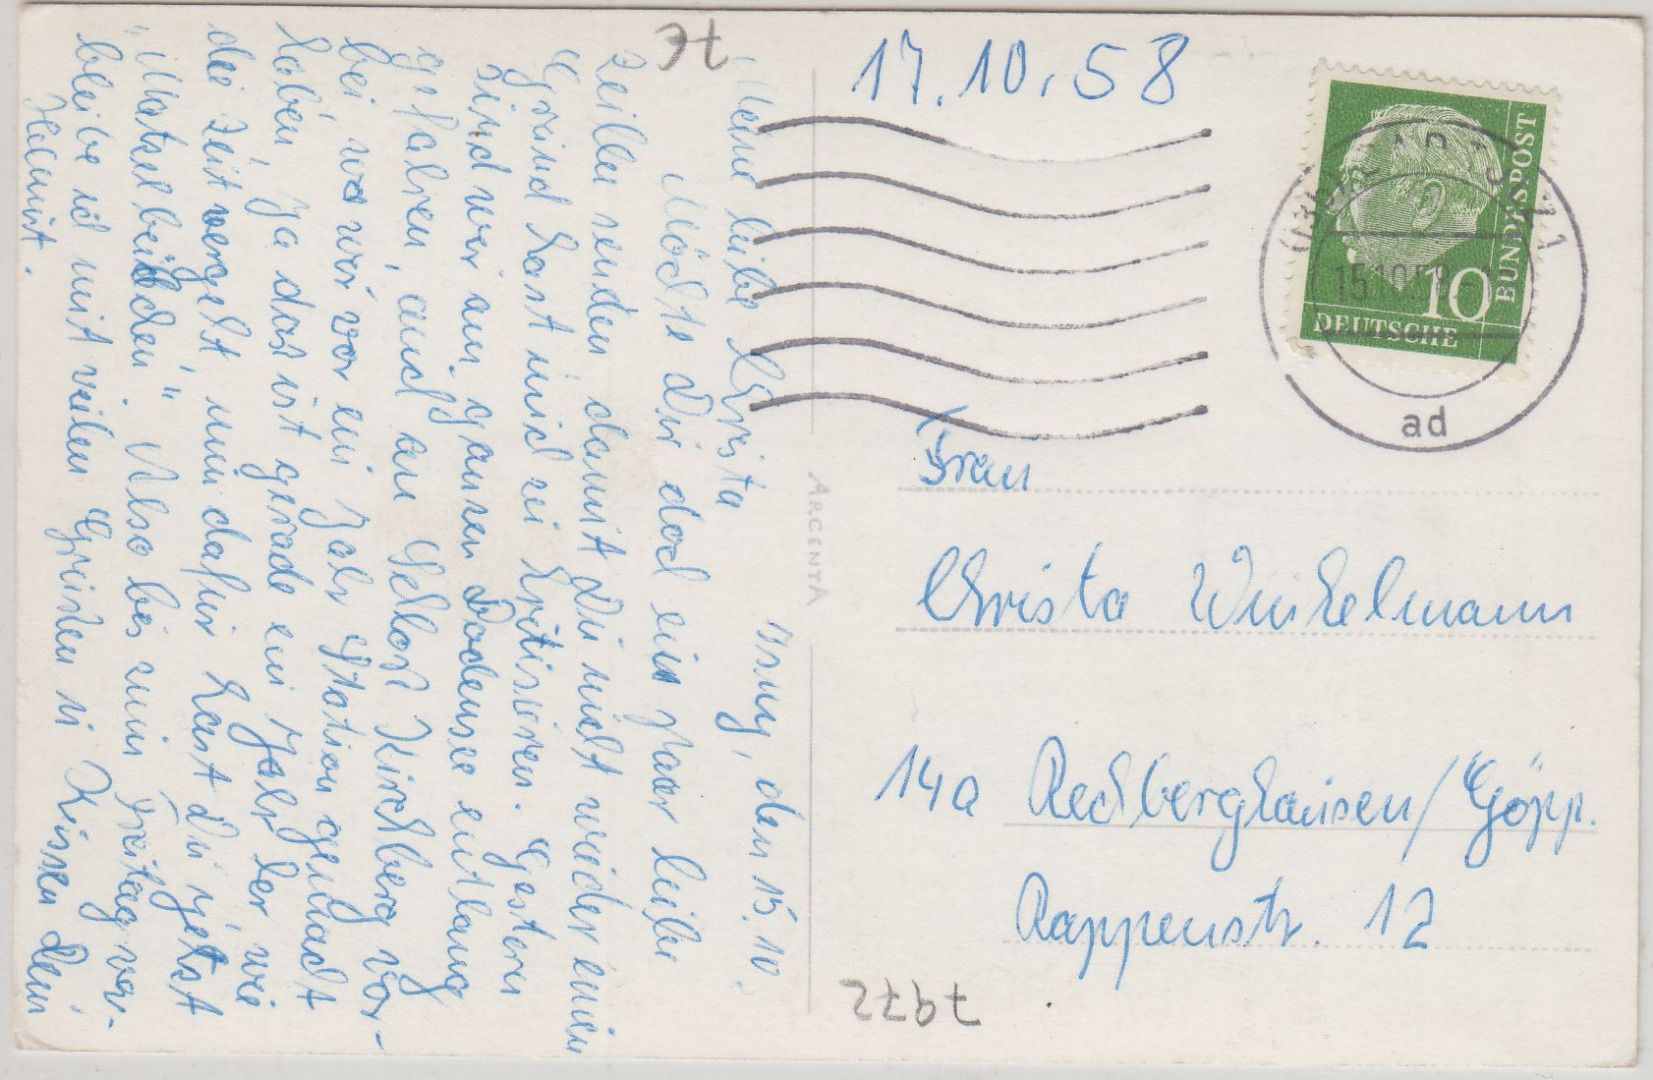 17.10.58
Isny, den 15.10.
Meine liebe Christa
Möchte Dir doch ein paar liebe
Zeilen senden damit Du nicht wieder einen
Grund hast mich zu kritisieren. Gestern
sind wir am ganzen Bodensee entlang
gefahren, auch an Schloß Kirchberg vor-
bei, wo wir vor ein Jahr Station gemacht
haben, ja das ist gerade ein Jahr her, wie
die Zeit vergeht, nun dafür hast Du jetzt
Also bis zum Freitag ver-
bleibe ich mit vielen Grüßen u Küssen Dein
Helmut.
ARGENTA
DEUTSCHE
BUNDESPOST
10
15.10.58
ad
Frau
Christa Winkelmann
14a Rechberghausen/Göpp.
Rappenstr. 12
7972